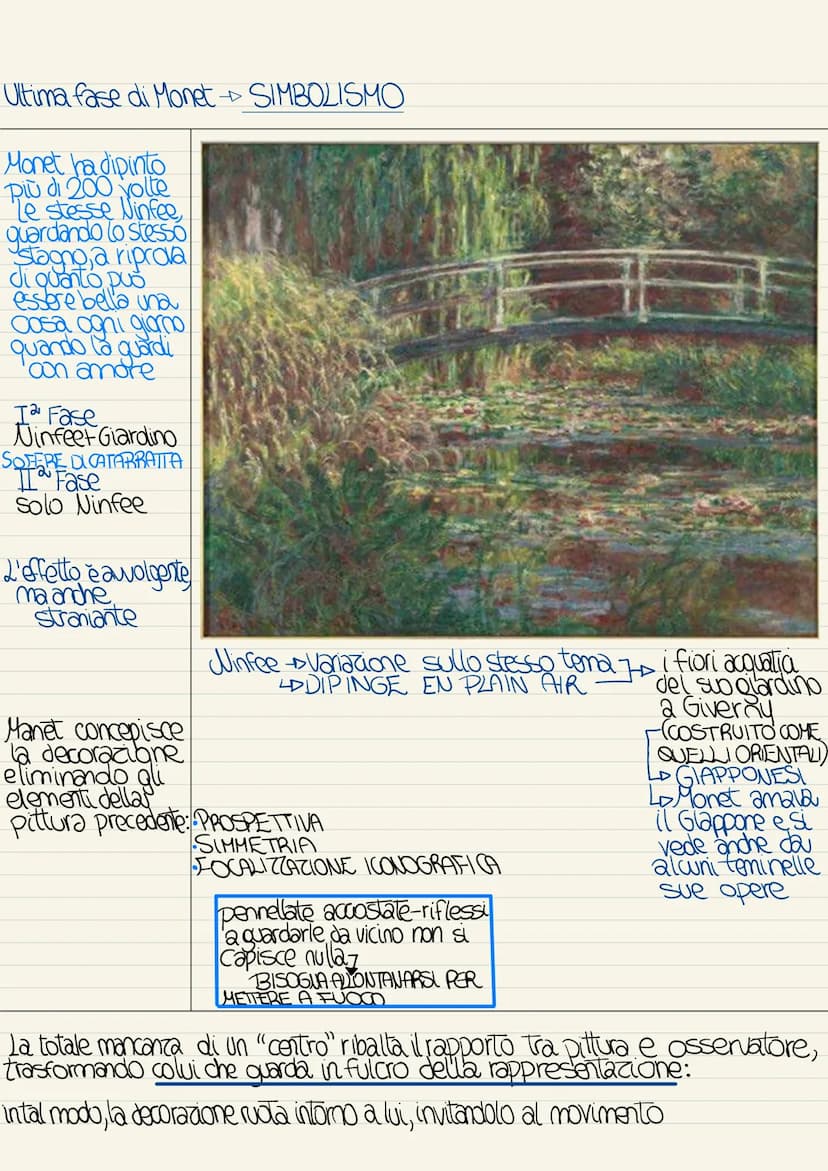 Ultima fase di Monet → SIMBOLISMO
Monet ha dipinto
più di 200 volte
le stesse Ninfee,
guardando lo stesso
stagno, a riprova
di quanto può
essere bella una
cosa ogni giorno
quando la guardi
con amore
Iª Fase
Ninfee+Giardino
SOFFRE DI CATARRATTA
IIª Fase
solo Ninfee
L'effetto è avvolgente,
ma anche
straniante
Ninfee → Variazione sullo stesso tema
↳ DIPINGE EN PLAIN AIR
i fiori acquatici
del suo giardino
a Giverny
(COSTRUITO COME
QUELLI ORIENTALI)
↳ GIAPPONESI
↳ Monet amava
il Giappone e si
vede anche da
alcuni temi nelle
sue opere
Manet concepisce
la decorazione
eliminando gli
elementi della
pittura precedente:
• PROSPETTIVA
• SIMMETRIA
• FOCALIZZAZIONE ICONOGRAFICA
pennellate accostate-riflessi
a guardarle da vicino non si
capisce nulla
BISOGNA ALLONTANARSI PER
METTERE A FUOCO
La totale mancanza di un "centro" ribalta il rapporto tra pittura e osservatore,
trasformando colui che guarda in fulcro della rappresentazione:
in tal modo, la decorazione ruota intorno a lui, invitandolo al movimento